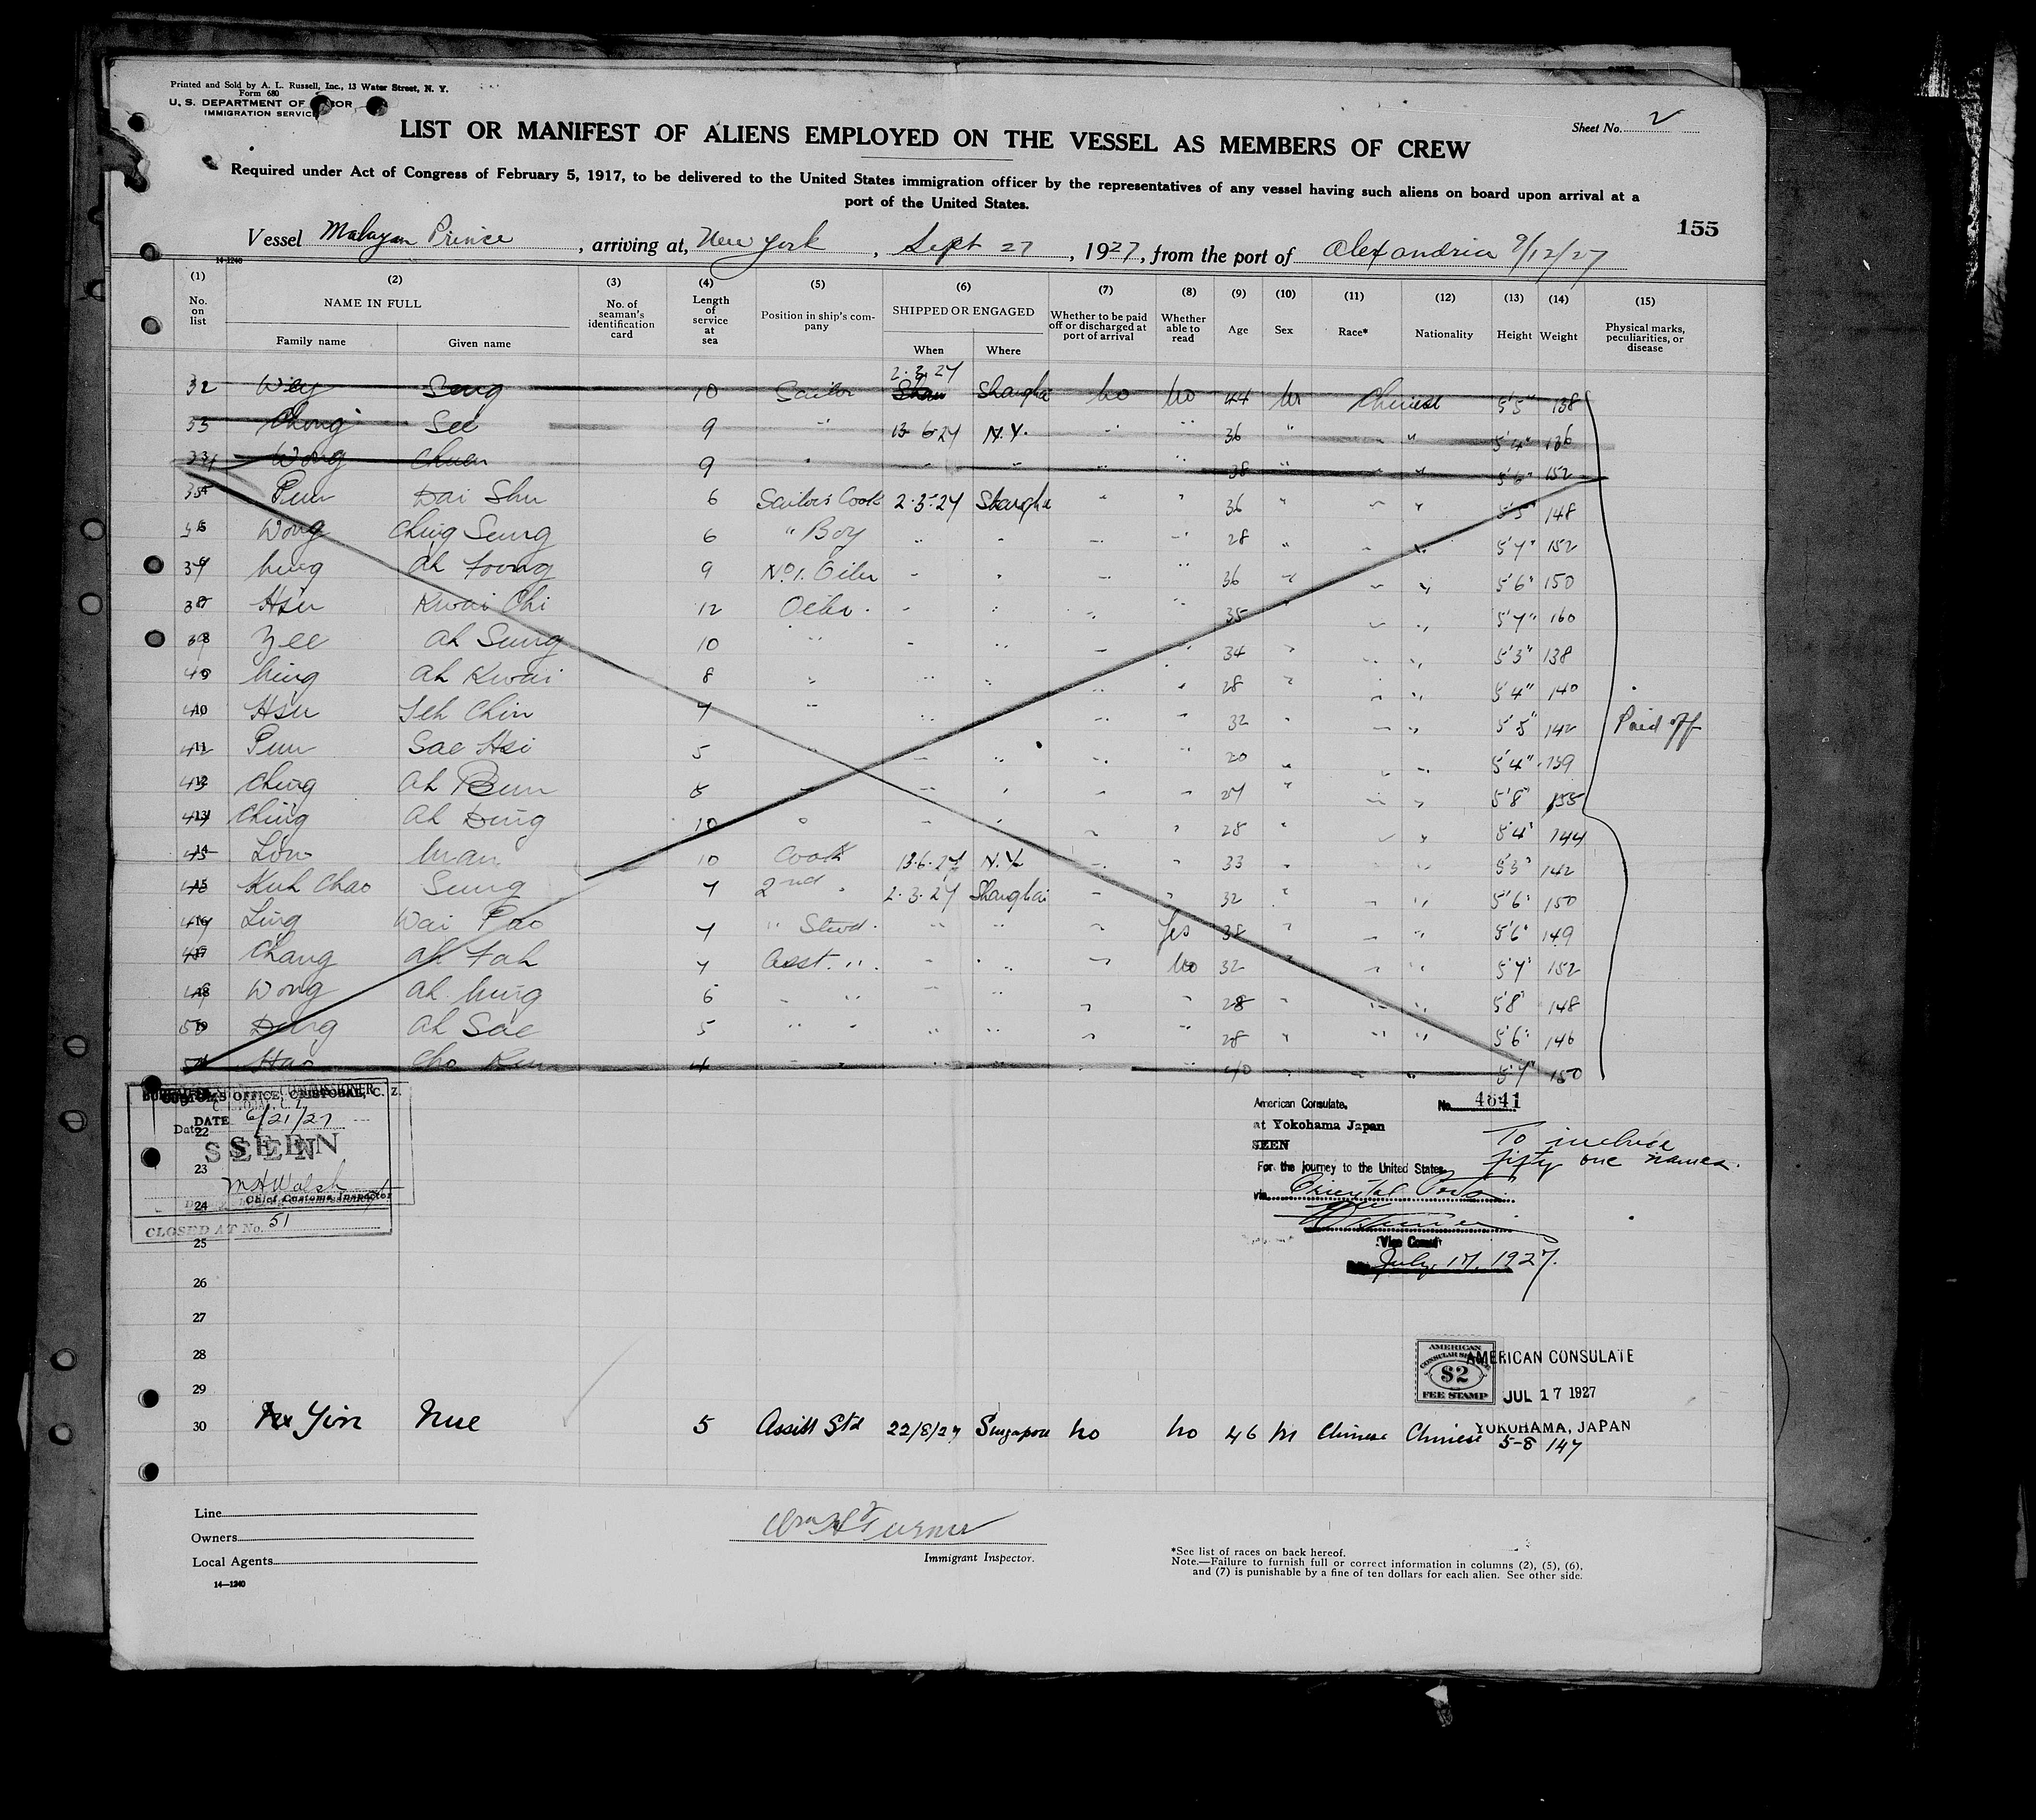 Printed and Sold by A. L. Russell, Inc., 13 Water Street, N. Y.
Form 680
U. S. DEPARTMENT OF LABOR
IMMIGRATION SERVICE
Sheet No. 2
LIST OR MANIFEST OF ALIENS EMPLOYED ON THE VESSEL AS MEMBERS OF CREW
Required under Act of Congress of February 5, 1917, to be delivered to the United States immigration officer by the representatives of any vessel having such aliens on board upon arrival at a
port of the United States.
155
Vessel Malayan Prince, arriving at, New York, Sept 27, 1927, from the port of Alexandria 9/12/27
14-1240
(1) (2) (3) (4) (5) (6) (7) (8) (9) (10) (11) (12) (13) (14) (15)
No. on list NAME IN FULL Family name Given name No. of seaman's identification card Length of service at sea Position in ship's company SHIPPED OR ENGAGED When Where Whether to be paid off or discharged at port of arrival Whether able to read Age Sex Race* Nationality Height Weight Physical marks, peculiarities, or disease
2.3.27
32 Wey Seng 10 Sailor Shanghai No No 44 M Chinese 5'5" 138
33 Chong See 9 " 13.6.27 N.Y. " " 36 " " " 5'4" 136
34 Wong Chuen 9 " " " " " 38 " " " 5'6" 152
35 Pun Dai Shu 6 Sailor's Cook 2.3.27 Shanghai " " 36 " " " 5'5" 148
36 Wong Ching Seung 6 " Boy " " " " 28 " " " 5'7" 152
37 Ning Ah Foong 9 No 1. Oiler " " " " 36 " " " 5'6" 150
38 Hsu Kwai Chi 12 Oiler. " " " " 35 " " " 5'7" 160
39 Zee Ah Sung 10 " " " " " 34 " " " 5'3" 138
40 Ning Ah Kwai 8 " " " " " 28 " " " 5'4" 140
41 Hsu Seh Chin 7 " " " " " 32 " " " 5'5" 142 Paid off
42 Pun Sae Hsi 5 " " " " " 20 " " " 5'4" 139
43 Ching Ah Bun 5 " " " " " 27 " " " 5'8" 155
44 Ching Ah Ding 10 " " " " " 28 " " " 5'4" 144
45 Low Wan 10 Cook 13.6.27 N.Y. " " 33 " " " 5'3" 142
46 Kuh Chao Sung 7 2nd " 2.3.27 Shanghai " " 32 " " " 5'6" 150
47 Ling Wai Pao 7 " Stwd. " " " Yes 38 " " " 5'6" 149
48 Chang Ah Fah 7 Asst. " " " " No 32 " " " 5'7" 152
49 Wong Ah Ning 6 " " " " " " 28 " " " 5'8" 148
50 Dong Ah Sae 5 " " " " " " 28 " " " 5'6" 146
51 Hao Cho Kun 4 " " " " " 40 " " " 5'7" 150
CUSTOMS OFFICE, CRISTOBAL, C. Z.
DATE 6/21/27
SEEN
M H Walsh
Chief Customs Inspector
CLOSED AT No. 51
22
23
24
25
26
27
28
29
American Consulate,
No. 4641
at Yokohama Japan
SEEN
For the journey to the United States
via Oriental Ports
To include
fifty one names.
Vice Consul
July 17, 1927.
AMERICAN
CONSULAR SERVICE
$2
FEE STAMP
AMERICAN CONSULATE
JUL 17 1927
YOKOHAMA, JAPAN
30 Yin Nue 5 Assist Std 22/8/27 Singapore No No 46 M Chinese Chinese 5-8 147
Line
Owners
Local Agents
14—1240
Wm H Turner
Immigrant Inspector.
*See list of races on back hereof.
Note.—Failure to furnish full or correct information in columns (2), (5), (6),
and (7) is punishable by a fine of ten dollars for each alien. See other side.